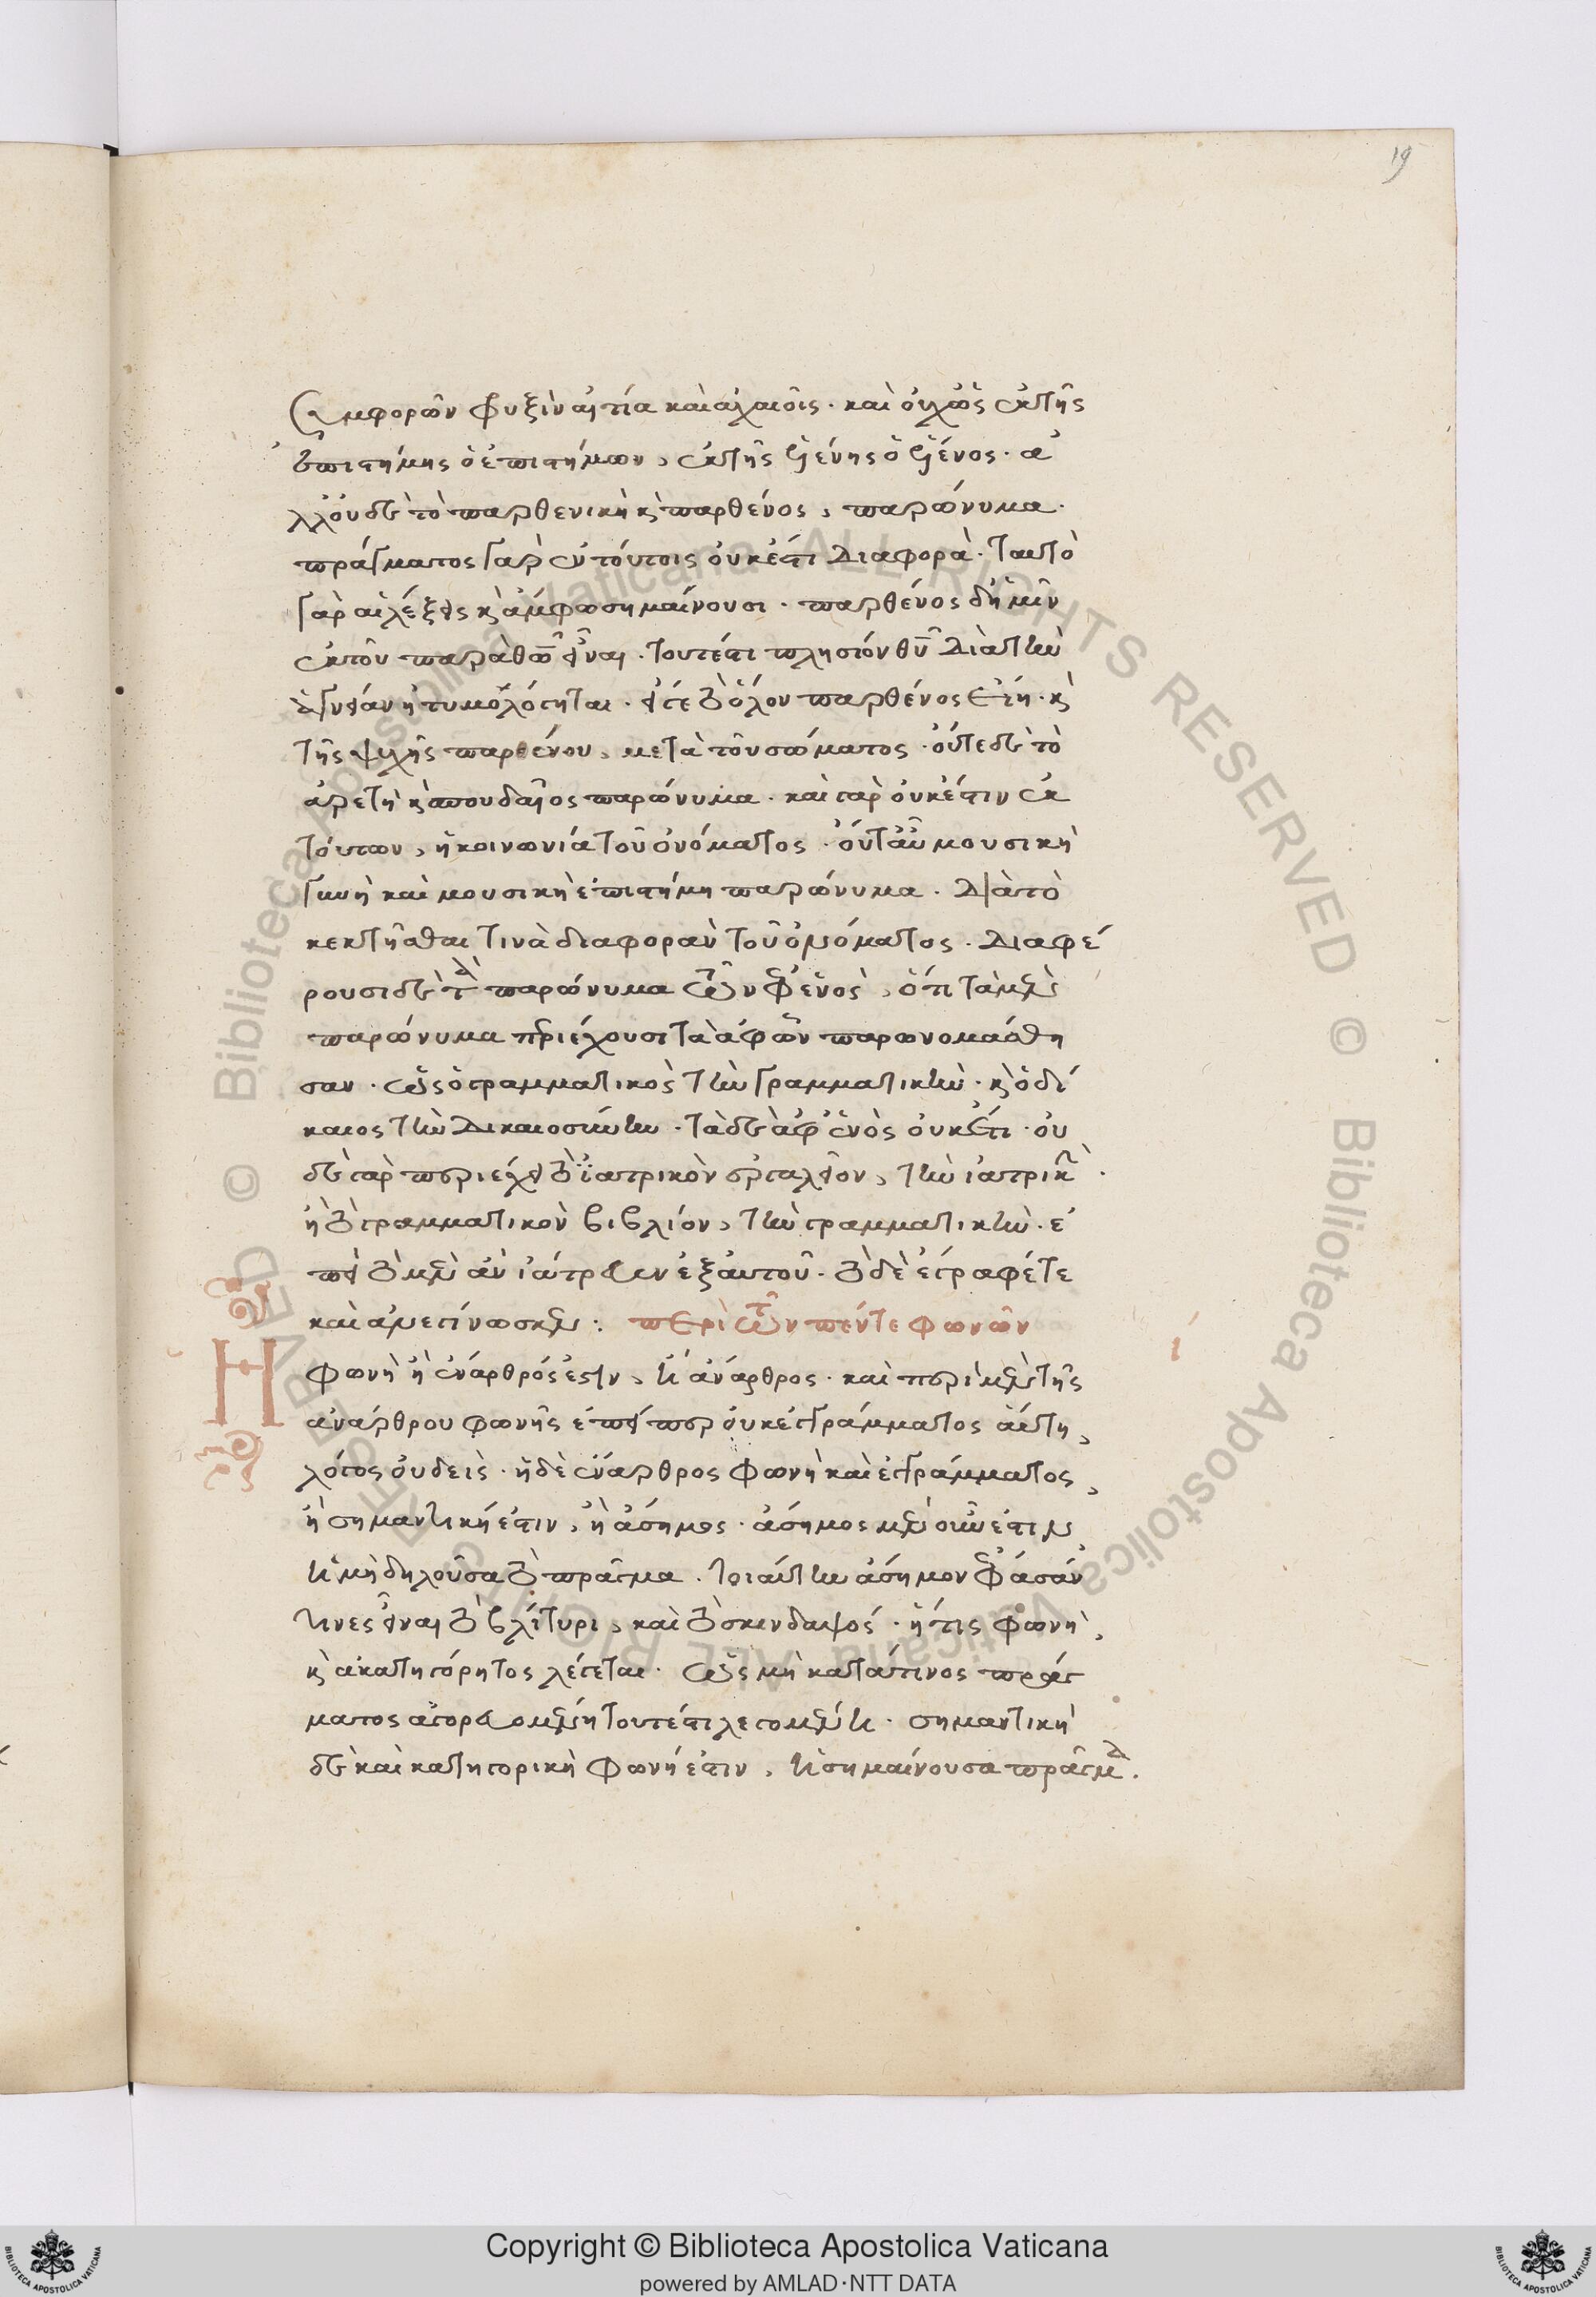 19
συμφορῶν φυξὶν αἰτία καὶ ἀχαιοῖς. καὶ οὐχ ὡς ἐκ τῆς
ἐπιστήμης ὁ ἐπιστήμων, ἐκ τῆς ξένης ὁ ξένος. ἀ
λλ' οὐδὲ τὸ παρθενικὴ κ παρθένος, παρώνυμα.
πράγματος γὰρ ἐν τούτοις οὐκ ἔστι διαφορά. ταυτὸ
γὰρ αἱ λέξεις κ ἄμφω σημαίνουσι. παρθένος δ' ἡμῖν
ἐκ τοῦ παρὰ θῶ εἶναι. τουτέστι πλησίον θῦ διὰ τὴν
ἁγνείαν ἠτυμολόγηται. εἴτε τὸ ὅλον παρθένος εἴη. κ
τῆς ψυχῆς παρθένου, μετὰ τοῦ σώματος. οὔτε δὲ τὸ
ἀρετὴ κ σπουδαῖος παρώνυμα. καὶ γὰρ οὐκ ἔστιν ἐκ
τούτων, ἡ κοινωνία τοῦ ὀνόματος. οὔτ' αὖ μουσικὴ
γυνὴ καὶ μουσικὴ ἐπιστήμη παρώνυμα. διὰ τὸ
κεκτῆσθαι τινὰ διαφορὰν τοῦ ὀνόματος. διαφέ
ρουσι δὲ τὰ παρώνυμα τῶν ἀφ' ἑνὸς, ὅτι τὰ μὲν
παρώνυμα περιέχουσι τὰ ἀφ' ὧν παρωνομάσθη
σαν. ὡς ὁ γραμματικὸς τὴν γραμματικὴν. κ ὁ δί
καιος τὴν δικαιοσύνην. τὰ δὲ ἀφ' ἑνὸς οὐκέτι. οὐ
δὲ γὰρ περιέχει τὸ ϊατρικὸν ἐργαλεῖον, τὴν ἰατρικὴν.
ἢ τὸ γραμματικὸν βιβλίον, τὴν γραμματικὴν. ἐ
πεὶ τὸ μὲν ἂν ἰάτρευεν ἐξ αὐτοῦ. τὸ δὲ ἐγράφετε
καὶ ἀνεγίνωσκεν: περὶ τῶν πέντε φωνῶν
Η φωνὴ ἢ ἔναρθρός ἐστιν, ἢ ἄναρθρος. καὶ περὶ μὲν τῆς
ἀνάρθρου φωνῆς ἐπείπερ οὐκ ἐγγράμματος αὕτη,
λόγος οὐδεὶς. ἡ δὲ ἔναρθρος φωνὴ καὶ ἐγγράμματος,
ἢ σημαντική ἐστιν, ἢ ἄσημος. ἄσημος μὲν οὖν ἐστιν
ἡ μὴ δηλοῦσα τὸ πρᾶγμα. τοιαύτην ἄσημον ἔφασάν
τινες εἶναι τὸ βλίτυρι, καὶ τὸ σκινδαψός. ἥτις φωνὴ,
κ ἀκατηγόρητος λέγεται. ὡς μὴ κατά τινος πράγ
ματος ἀγορευομένη τουτέστι λεγομένη. σημαντικὴ
δὲ καὶ κατηγορικὴ φωνή ἐστιν, ἡ σημαίνουσα πρᾶγμα.